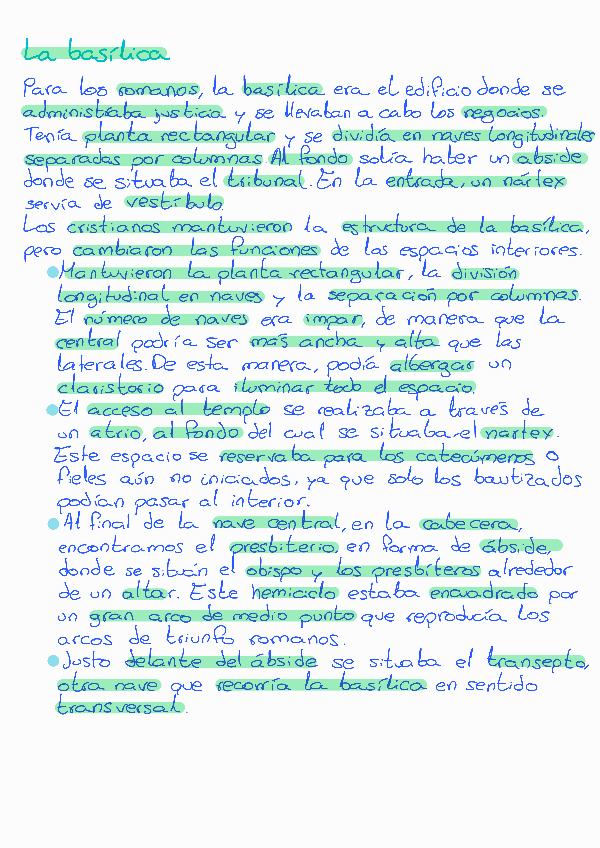 La basílica
Para los romanos, la basílica era el edificio donde se
administraba justicia y se llevaban a cabo los negocios.
Tenía planta rectangular y se dividía en naves longitudinales
separadas por columnas. Al fondo solía haber un ábside
donde se situaba el tribunal. En la entrada, un nártex
servía de vestíbulo.
Los cristianos mantuvieron la estructura de la basílica,
pero cambiaron las funciones de los espacios interiores.
Mantuvieron la planta rectangular, la división
longitudinal en naves y la separación por columnas.
El número de naves era impar, de manera que la
central podría ser más ancha y alta que las
laterales. De esta manera, podía albergar un
claristorio para iluminar todo el espacio.
El acceso al templo se realizaba a través de
un atrio, al fondo del cual se situaba el nartex.
Este espacio se reservaba para los catecúmenos o
fieles aún no iniciados, ya que solo los bautizados
podían pasar al interior.
Al final de la nave central, en la cabecera,
encontramos el presbiterio, en forma de ábside,
donde se sitúan el obispo y los presbíteros alrededor
de un altar. Este hemiciclo estaba encuadrado por
un gran arco de medio punto que reproducía los
arcos de triunfo romanos.
Justo delante del ábside se situaba el transepto,
otra nave que recorría la basílica en sentido
transversal.